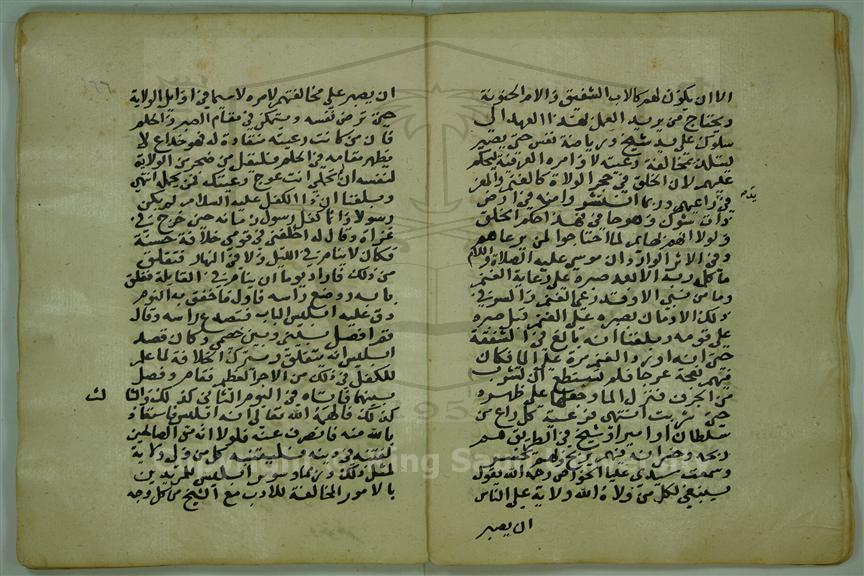 الا ان يكون لهم كالاب الشفيق والام الحنونة
ويحتاج من يريد العمل بهذا العهد الى
سلوك على يد شيخ ورياضة نفس حتى يصير
يتلذذ بمخالفة رعيته لاوامره العرفية ويحلم
عليهم لان الخلق في حجر الولاة كالغنم والمعز
في راعيهم وربما انتشروا منه في ارض
ذات شوك وهو حاف هذا حكم الخلق
ولولا انهم بهايم لما احتاجوا لمن يرعاهم
وفي الاثر الوارد ان موسى عليه الصلاة والسلام
ما كلمه ربه الا بعد صبره على رعاية الغنم
وما من نبي الا وقد رعى الغنم والسر في
ذلك الادمان بصبره على الغنم قبل صبره
على قومه وبلغنا انه بالغ في الشفقة
حتى انه اورد الغنم مرة على الما فكان
فيهم نعجة عرجا فلم تستطع ان تشرب
من الجرف فنزل الما وحملها على ظهره
حتى شربت انتهى فرعية كل راع من
سلطان او امير او شيخ في الطريق هم
ربحه وخسرانه فبهم يربح وبهم يخسر
وسمعت سيدي عليا الخواص رحمه الله يقول
ينبغي لكل من ولاه الله ولاية على الناس
ان يصبر
ان يصبر على مخالفتهم لامره لاسيما في اوايل الولاية
حتى تروض نفسه ويتمكن في مقام الصبر والحلم
فان من كانت رعيته منقادة له فهو خداع لا
يظهر مقامه في الحلم وليقل من ضجر من الولاية
لنفسه ان لم تحملي انت عوج رعيتك فمن يحمل انتهى
وبلغنا ان ذا الكفل عليه السلام لم يكن
رسولا وانما كفل رسول زمانه حين خرج في
غزاة وقال له اخلفني في قومي خلافة حسنة
فكان لا ينام في الليل ولا في النهار فقلق
من ذلك فاراد يوما ان ينام في القايلة فغلق
بابه ووضع راسه فاول ما خفق به النوم
دق عليه ابليس الباب فتصدع راسه وقال
قم افصل بيني وبين خصمي وكان قصد
ابليس انه يتقلق ويترك الخلافة لما علم
للكفل في ذلك من الاجر العظيم فقام وفصل
بينهما فاتاه في اليوم الثاني كذلك والثالث
كذلك فالهمه الله تعالى انه ابليس فاستعاذ
بالله منه فانصرف عنه فلولا انه من الصالحين
لفتنه في دينه فليتنبه كل من ولي ولاية
لمثل ذلك وربما وسوس ابليس للمريدين
بالامور المخالفة للادب مع الشيخ من كل وجه